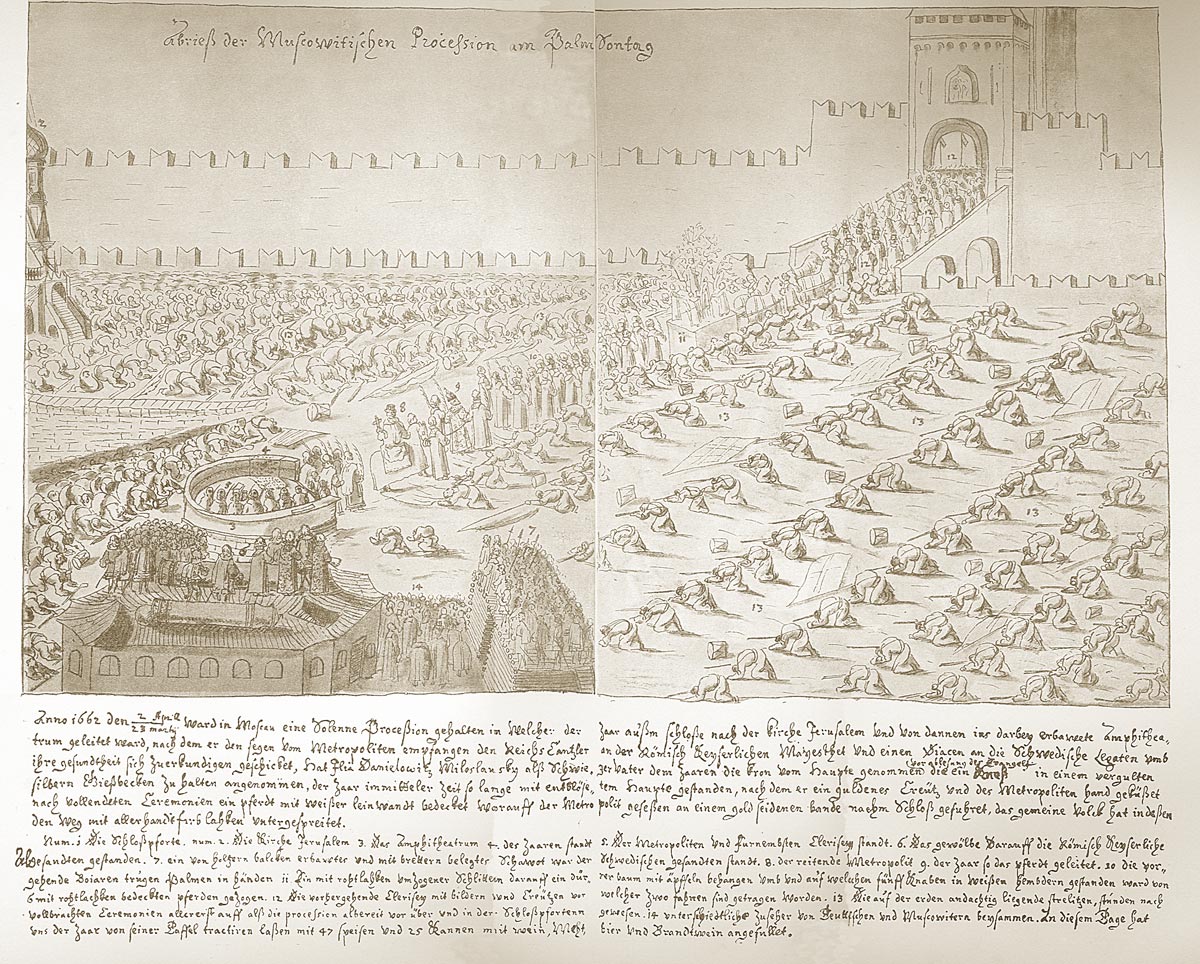 Abrieß der Muscowitischen Procession am PalmSontag
2
12
13
10
9
8
11
12
13
13
4
3
7
14
13
13
Anno 1662 den 2 April / 23 martij ward in Moscau eine Solenne Procession gehalten in Welcher der Zaar außm schloße nach der kirche Jerusalem und von dannen ins darbey erbawete Amphithea-
trum geleitet ward, nach dem er den segen vom Metropoliten empfangen den Reichs Cantzler an der Römisch Keyserlichen Mayesthet und einen Diacen an die Schwedische Legaten umb
ihre gesundtheit sich zuerkundigen geschicket, hat Ilia Danielowitz Miloslausky alß Schwie, zer Vater dem Zaaren die kron vom haupte genommen die ein Kneß vor ablesung des Evangely in einem vergulten
silbern Gießbecken zu halten angenommen, der Zaar immitteler Zeit so lange mit entblöße, tem Haupte gestanden, nach dem er ein guldenes Creutz und des Metropoliten hand geküßet
nach vollendeten Ceremonien ein pferdt mit weißer leinwandt bedecket worauff der Metro polit geseßen an einem gold seidenen bande nachm Schloß gefuhret, das gemeine volck hat indeßen
den Weg mit allerhandt farb lahken untergespreitet.
Num. 1 Die Schloßpforte. num. 2. Die Kirche Jerusalem 3. Das Amphitheatrum 4. der Zaaren standt 5. Der Metropoliten und Furnembsten Clerisey standt. 6. Das gewölbe Darauff die Römisch Keyserliche
Abgesandten gestanden. 7. ein von holtzern balcken erbawter und mit brettern belegter Schawot war der Schwedischen gesandten standt. 8. der reitende Metropolit 9. der Zaar so das pferdt geleitet. 10 die vor-
gehende Boiaren trugen Palmen in händen 11 Ein mit rohtlahken umzogener Schlitten darauff ein dür, rer baum mit äpffeln behangen umb und auf welchen fünff Knaben in weißen hembdern gestanden ward von
6 mit rohtlachken bedeckten pferden gezogen. 12 Die vorhergehende Clerisey mit bildern und Creutzen vor welcher zwo fahnen sind getragen worden. 13 Die auf der erden andächtig ligende strelitzen, stunden nach
vollbrachten Ceremonien allererst auff alß die procession albereit vor über und in der Schloßpfortenn gewesen. 14 unterschiedtliche Zuseher von Teutschen und Muscowitern beysammen. An diesem Tage hat
uns der Zaar von seiner Taffel tractiren laßen mit 47 speisen und 25 Kannen mit wein, Meht bier und Brandtwein angefullet.